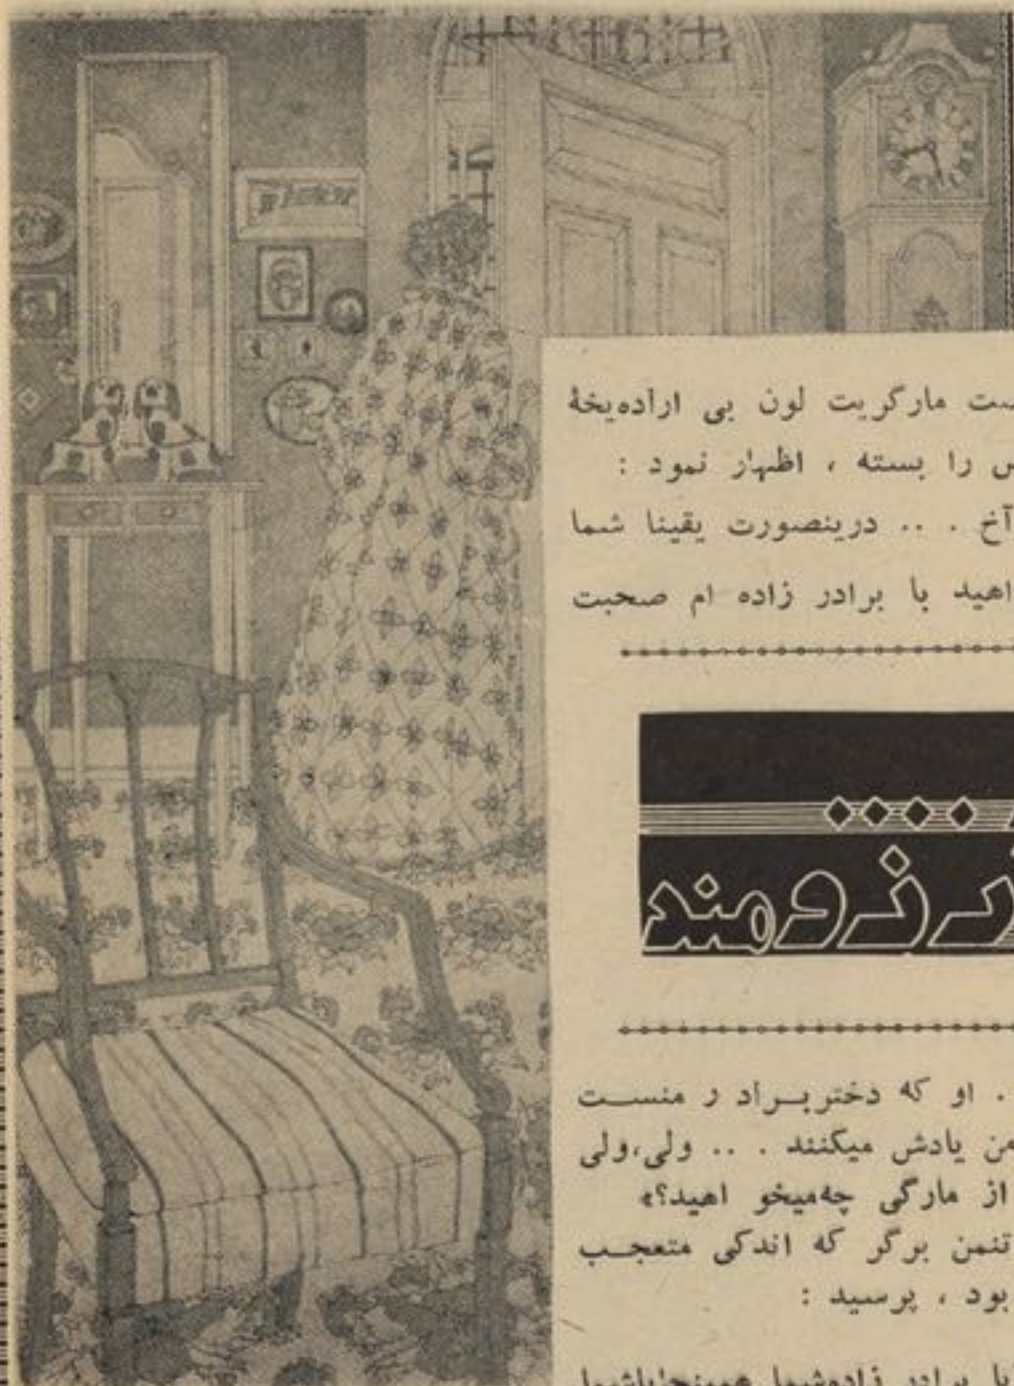 ست مارگریت لون بی اراده‌یخهٔ
س را بسته ، اظهار نمود :
آخ . .. درینصورت یقینا شما
اهید با برادر زاده ام صحبت
رزومند
. او که دختر بـــراد ر منســـت
من یادش میکنند . .. ولی،ولی
از مارگی چه‌میخو اهید؟»
تنمن برگر که اندکی متعجـــب
بود ، پرسید :
برادر زاده‌شما همینجا‌باشما